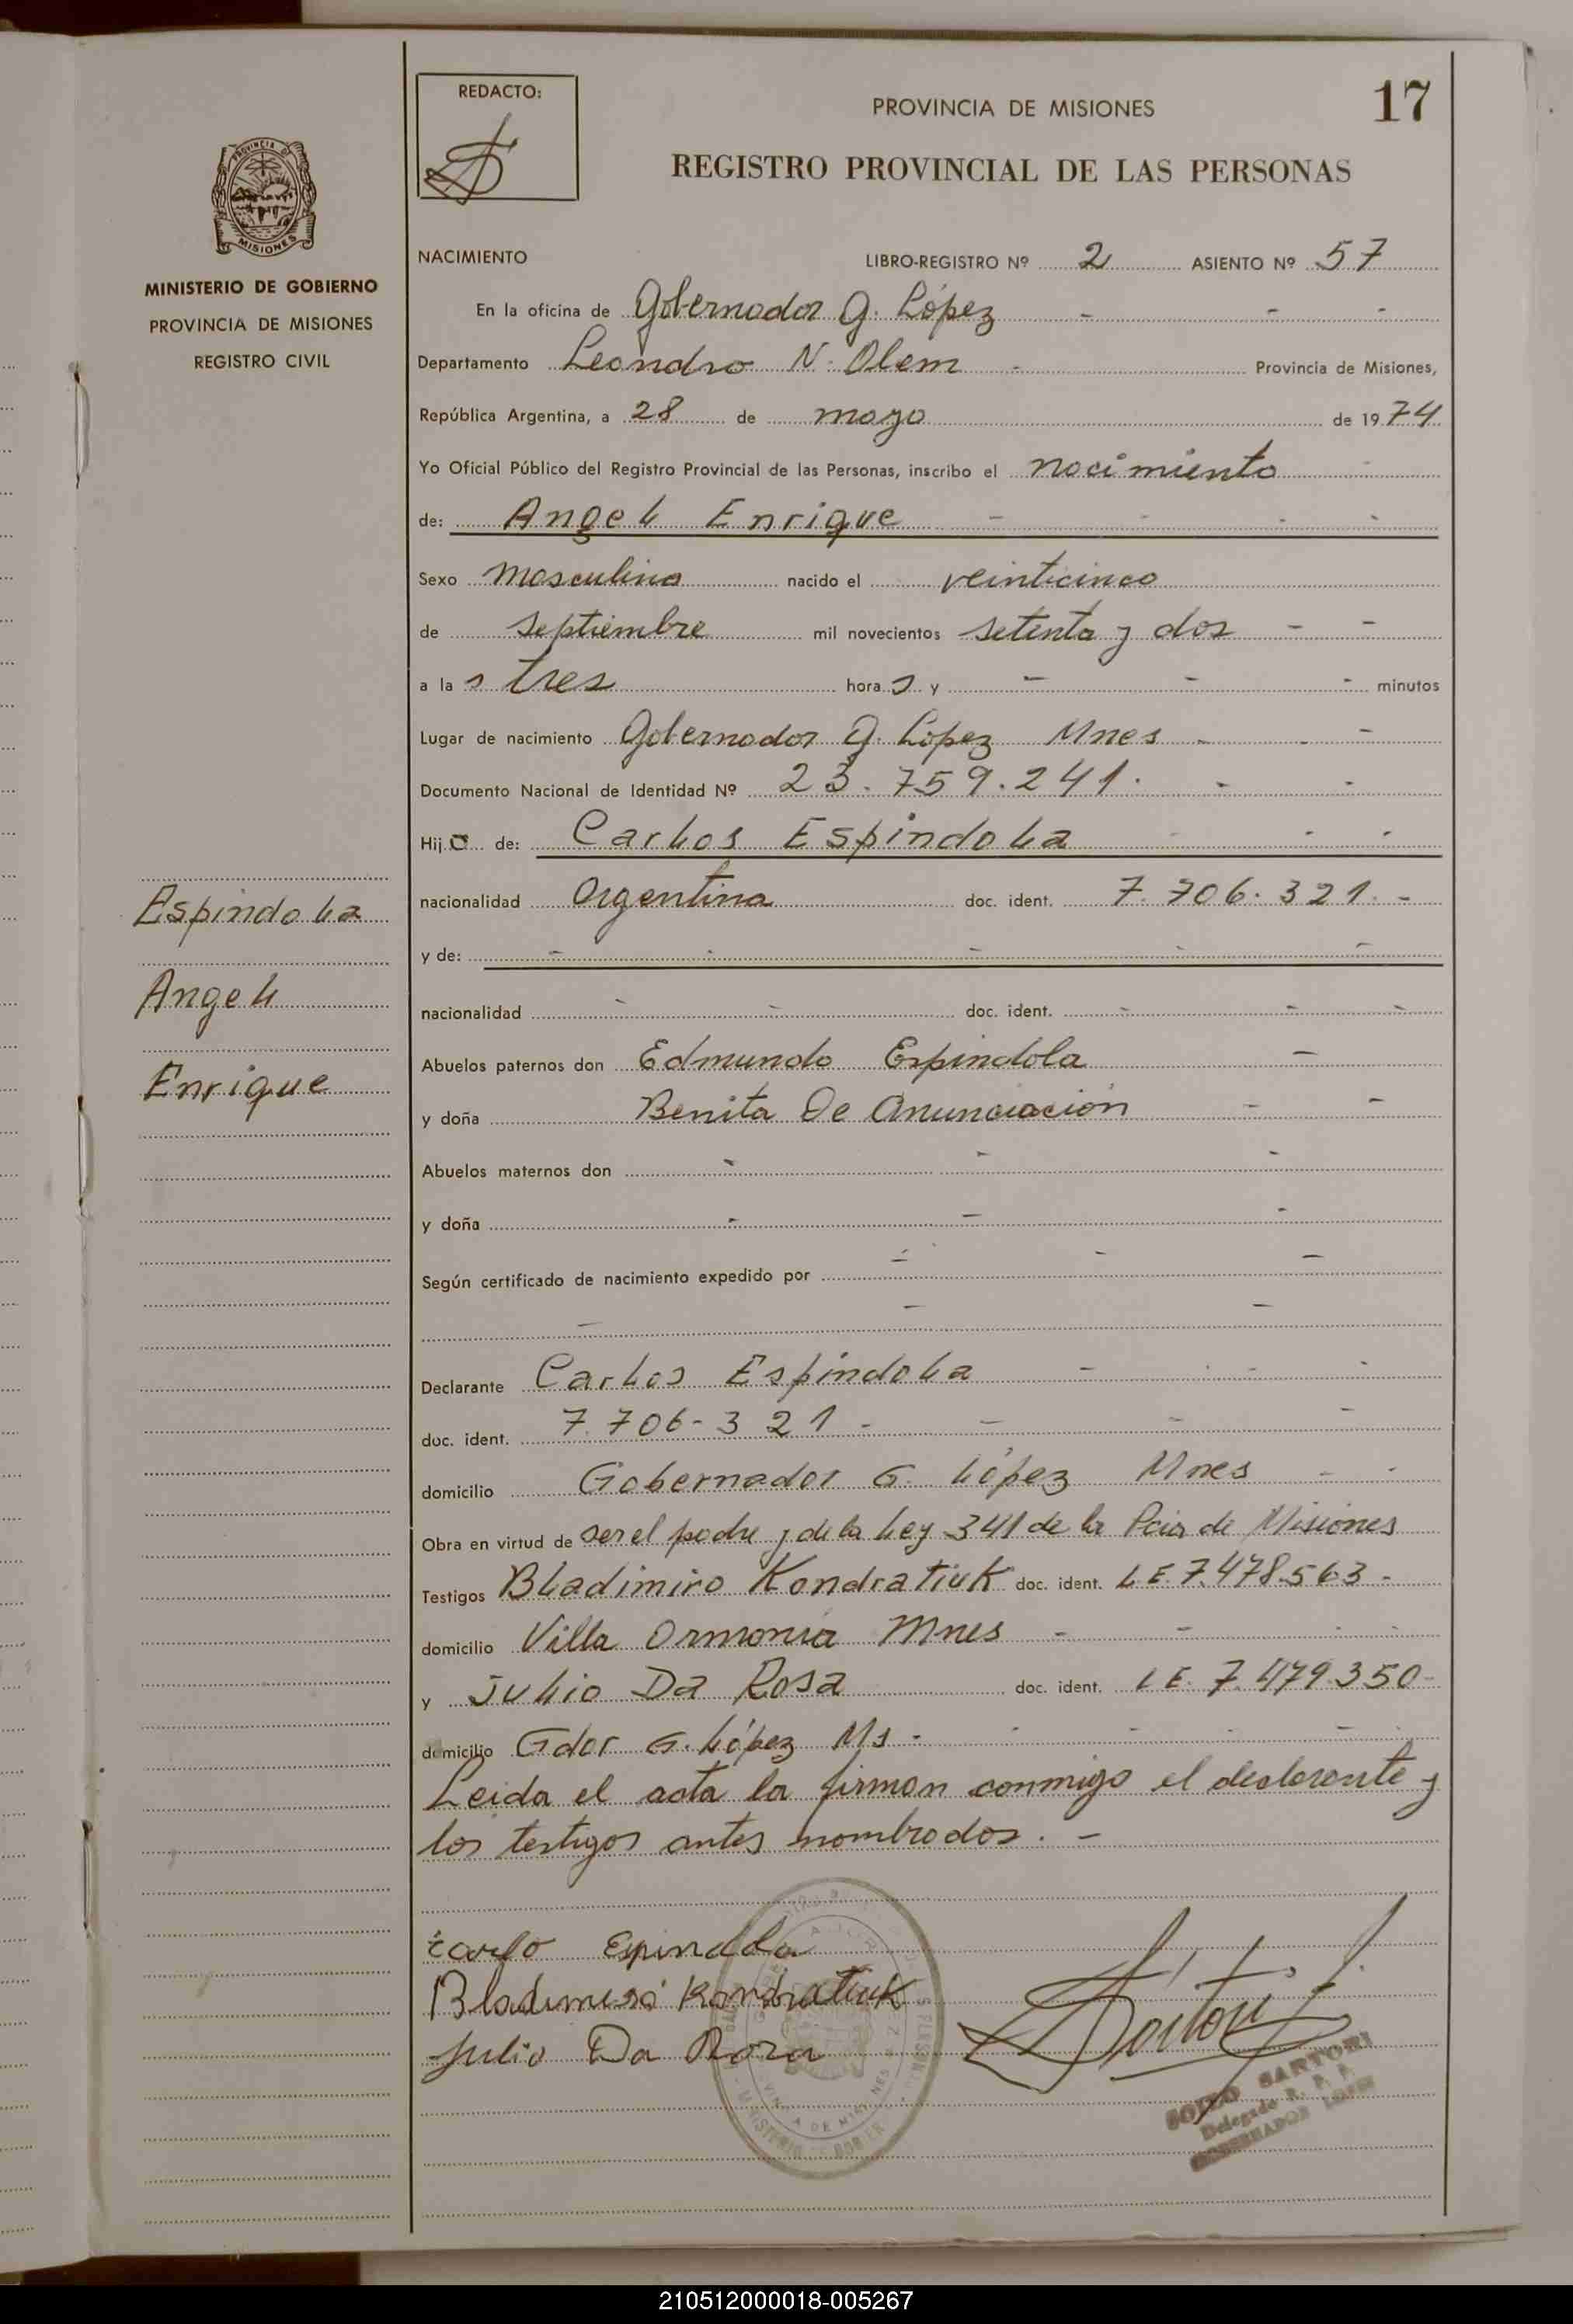 REDACTO:
PROVINCIA DE MISIONES
17
REGISTRO PROVINCIAL DE LAS PERSONAS
PROVINCIA DE
MISIONES
MINISTERIO DE GOBIERNO
PROVINCIA DE MISIONES
REGISTRO CIVIL
NACIMIENTO LIBRO-REGISTRO Nº 2 ASIENTO Nº 57
En la oficina de Gobernador G. López - - -
Departamento Leandro N. Alem - Provincia de Misiones,
República Argentina, a 28 de mayo de 1974
Yo Oficial Público del Registro Provincial de las Personas, inscribo el nacimiento -
de: Angel Enrique - - -
Sexo masculino nacido el veinticinco
de septiembre mil novecientos setenta y dos - -
a las tres horas y - - - minutos
Lugar de nacimiento Gobernador G. López Mnes - - -
Documento Nacional de Identidad Nº 23.759.241. - -
Hijo de: Carlos Espindola - - -
nacionalidad Argentina doc. ident. 7.706.321.-
y de: - - - - -
nacionalidad - - doc. ident. - - -
Abuelos paternos don Edmundo Espindola -
y doña Benita De Anunciación - -
Abuelos maternos don - - -
y doña - - -
Según certificado de nacimiento expedido por - - -
- - -
Declarante Carlos Espindola - - - -
doc. ident. 7.706-321- - - -
domicilio Gobernador G. López Mnes - -
Obra en virtud de ser el padre y de la Ley 341 de la Pcia de Misiones
Testigos Bladimiro Kondratiuk doc. ident. L E. 7.478.563-
domicilio Villa Armonia Mnes - - - -
y Julio Da Rosa doc. ident. L E. 7.479.350-
domicilio Gdor G. López Ms - - - - -
Leida el acta la firman conmigo el declarante y
los testigos antes nombrados. -
Espindola
Angel
Enrique
Espindola
Bladimiro Kondratiuk
Julio Da Rosa
SARTORI
Delegado R. P. P.
GOBERNADOR LOPEZ
210512000018-005267